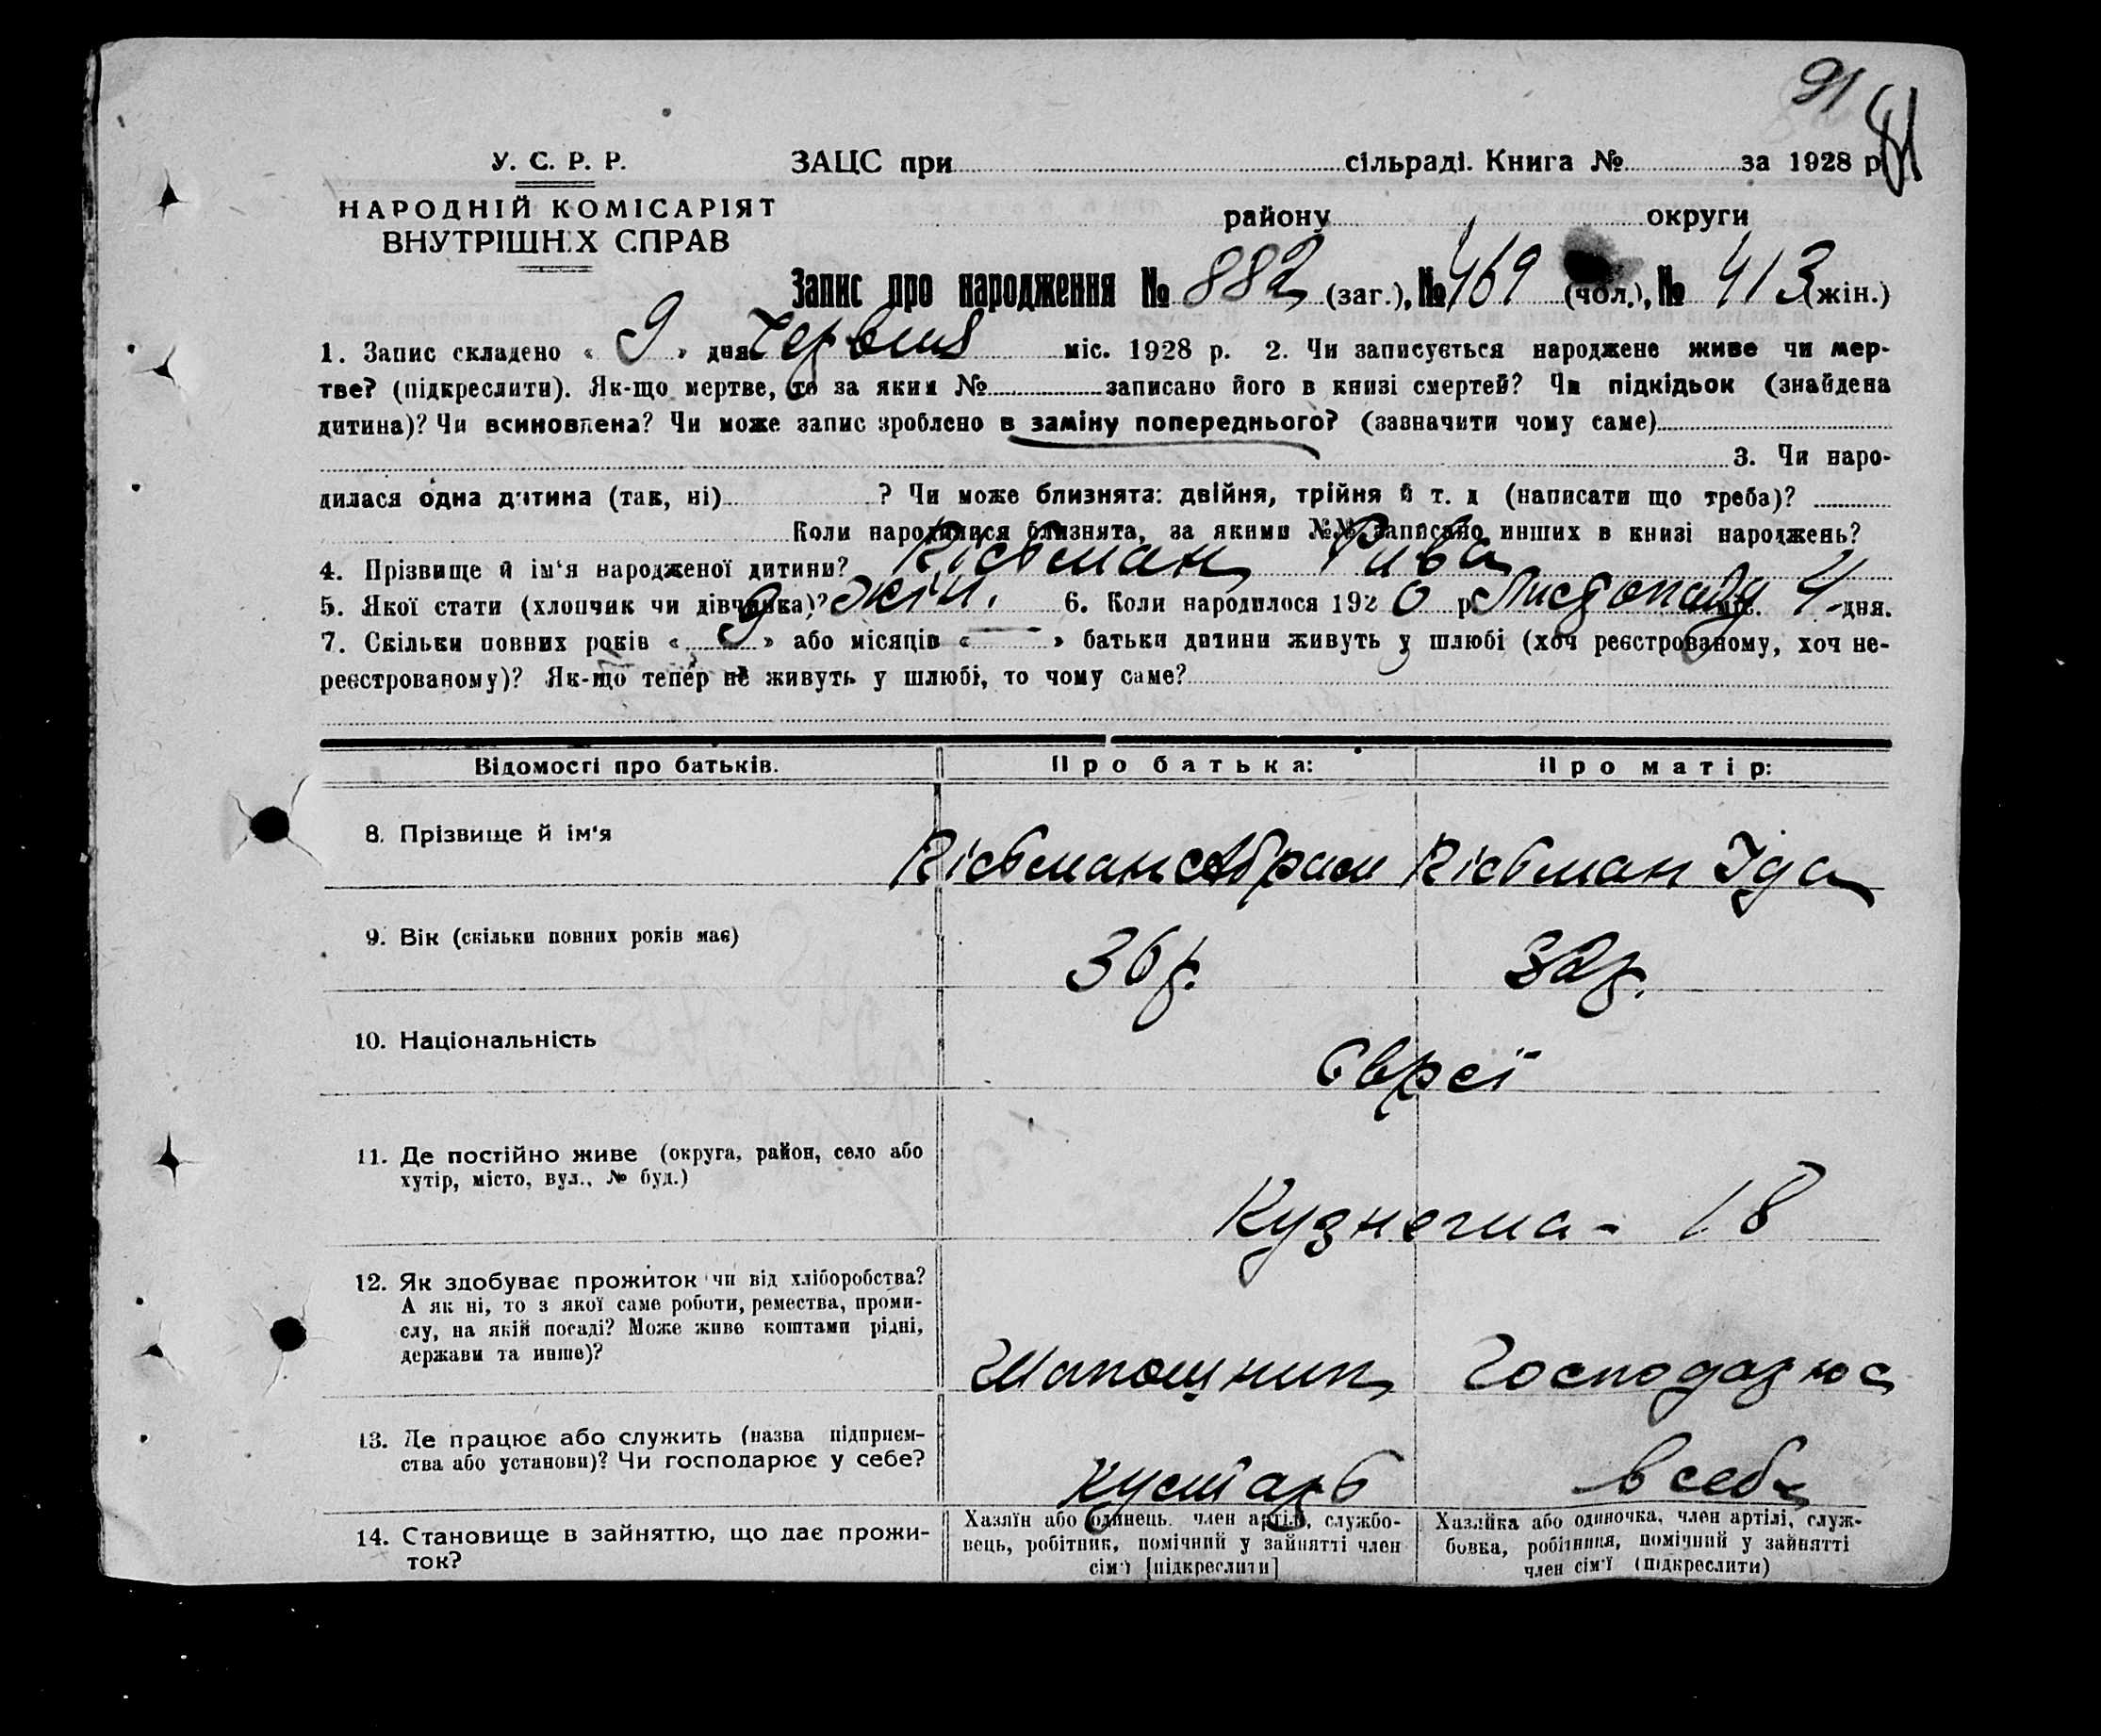 91
81
У. С. Р. Р.
НАРОДНІЙ КОМІСАРІЯТ
ВНУТРІШНІХ СПРАВ
ЗАЦС при сільраді. Книга № за 1928 р
району округи
Запис про народження № 882 (заг.), № 469 (чол.), № 413 (жін.)
1. Запис складено « 9 » дня Червня міс. 1928 р. 2. Чи записується народжене живе чи мер-
тве? (підкреслити). Як-що мертве, то за яким № записано його в книзі смертей? Чи підкідьок (знайдена
дитина)? Чи всиновлена? Чи може запис зроблено в заміну попереднього? (зазначити чому саме)
3. Чи наро-
дилася одна дитина (так, ні) ? Чи може близнята: двійня, трійня й т. д (написати що треба)?
Коли народилися близнята, за якими №№ записано инших в книзі народжень?
4. Прізвище й ім'я народженої дитини? Кісьман Рива
5. Якої стати (хлопчик чи дівчинка)? жін. 6. Коли народилося 1920 р. Листопаду міс. 4 дня.
7. Скільки повних років « 9 » або місяців « — » батьки дитини живуть у шлюбі (хоч реєстрованому, хоч не-
реєстрованому)? Як-що тепер не живуть у шлюбі, то чому саме?
Відомості про батьків. Про батька: Про матір:
8. Прізвище й ім'я Кісьман Абрам Кісьман Іда
9. Вік (скільки повних років має) 36 р. 32 р.
10. Національність Євреї
11. Де постійно живе (округа, район, село або
хутір, місто, вул., № буд.)
18
12. Як здобуває прожиток чи від хліборобства?
А як ні, то з якої саме роботи, ремества, проми-
слу, на якій посаді? Може живе коштами рідні,
держави та инше)?
Шапошник Господарює
13. Де працює або служить (назва підприєм-
ства або установи)? Чи господарює у себе?
Кустарь в себе
14. Становище в зайняттю, що дає прожи-
ток?
Хазяїн або одинець, член артілі, службо-
вець, робітник, помічний у зайнятті член
сім'ї [підкреслити]
Хазяйка або одиночка, член артілі, служ-
бовка, робітниця, помічний у зайнятті
член сім'ї (підкреслити)